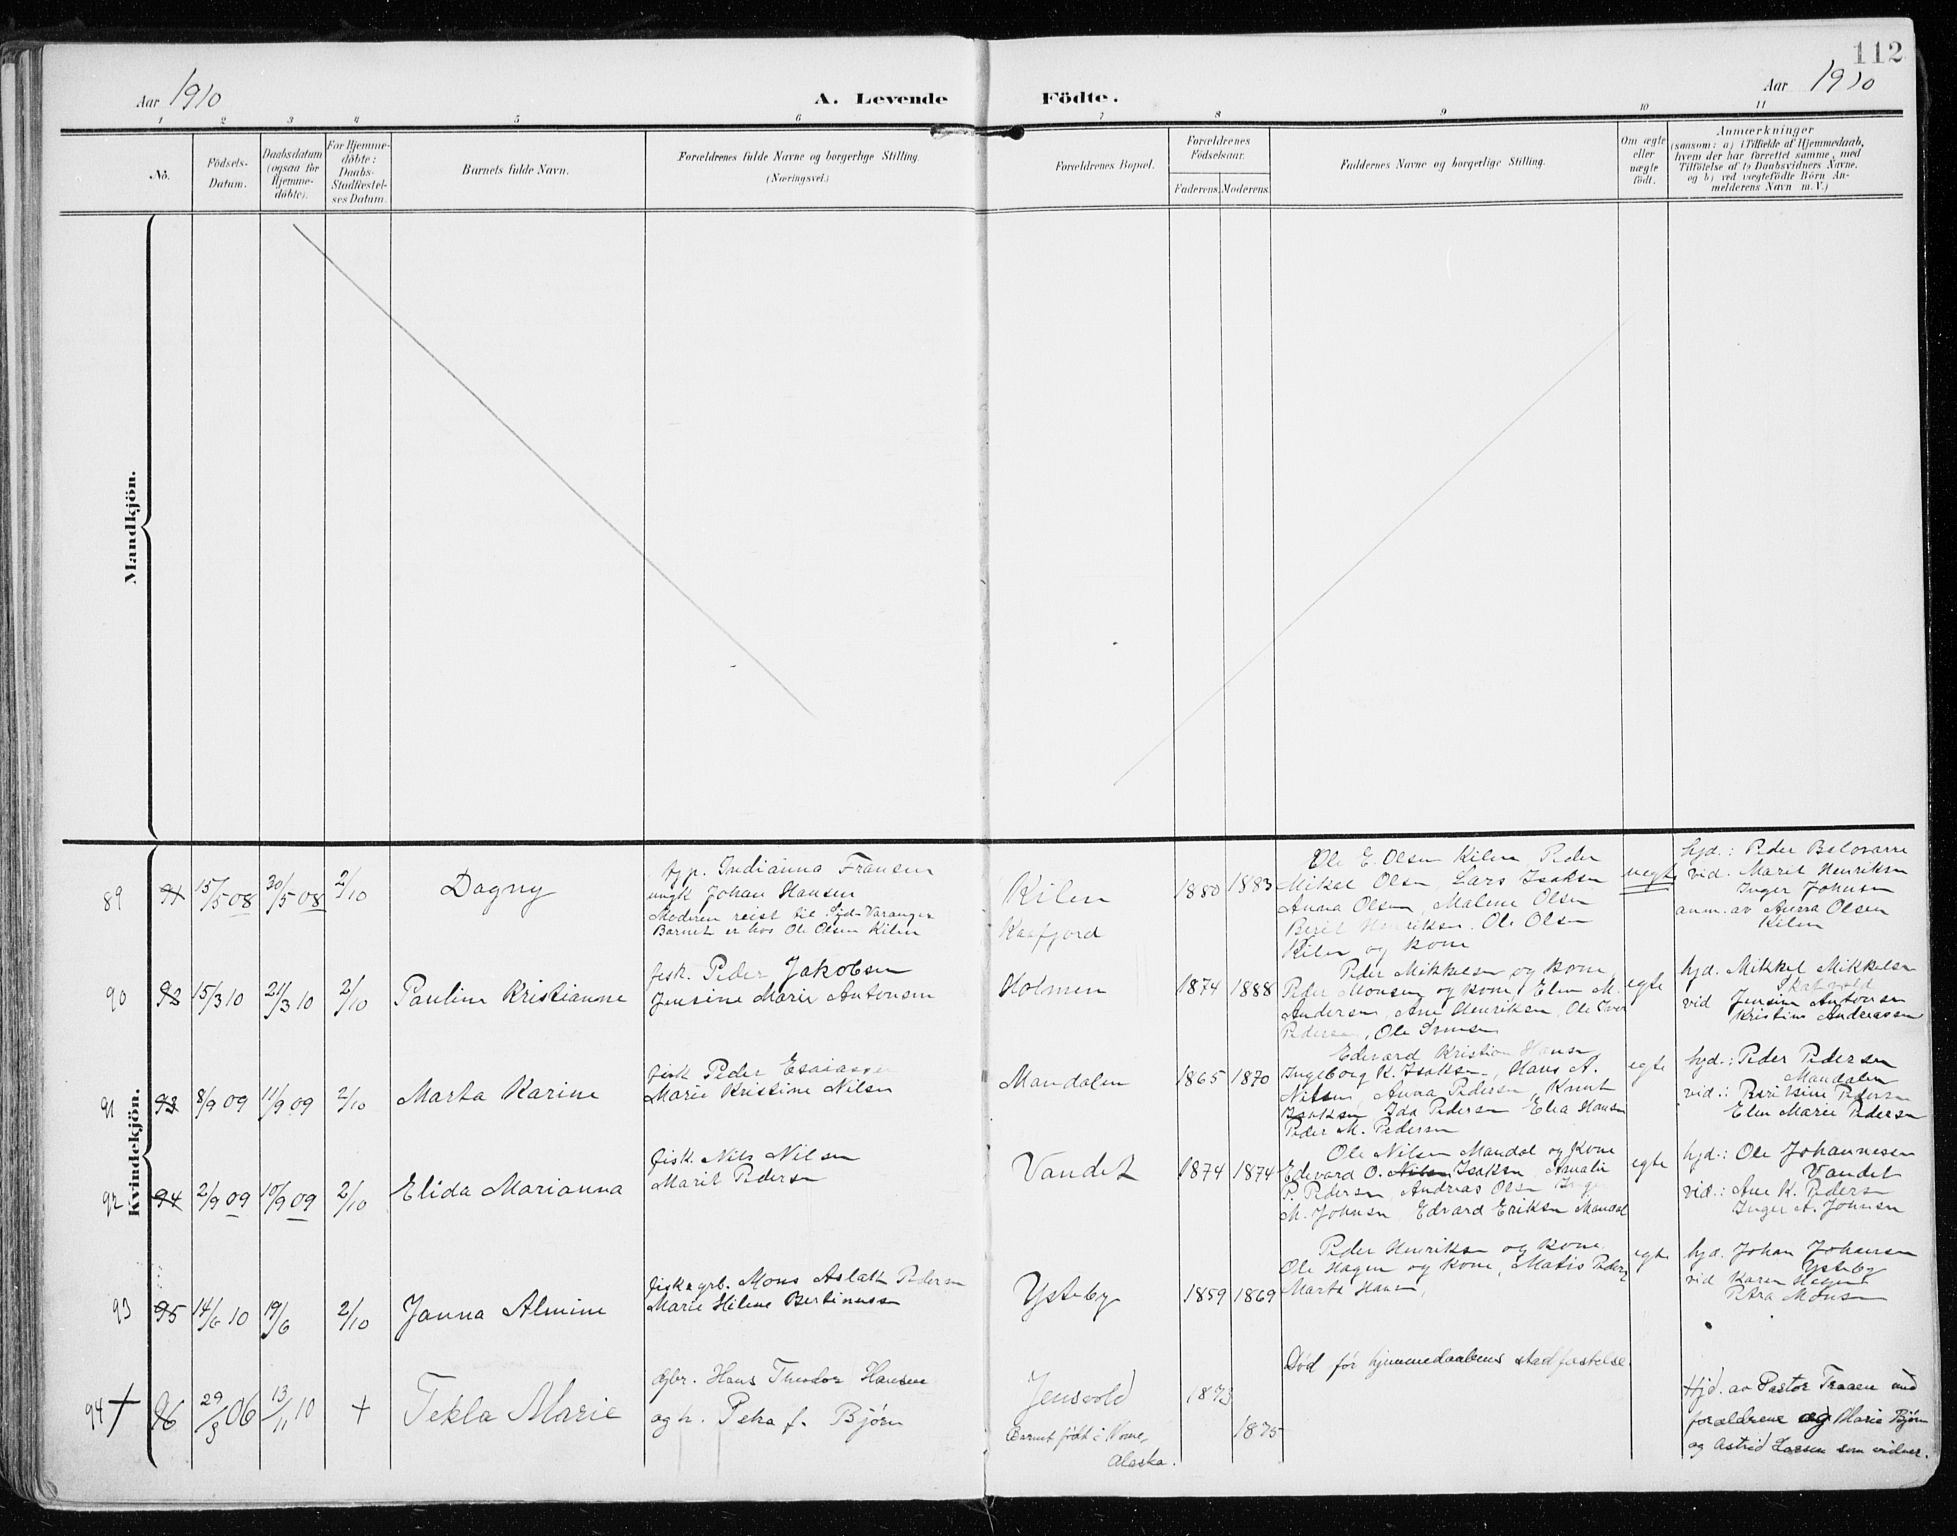 112
Aar 1910
A. Levende Födte.
Aar 1910
1 2 3 4 5 6 7 8 9 10 11
No.
Födsels-Datum.
Daabsdatum (ogsaa for Hjemme-döbte).
For Hjemme-döbte: Daabs-Stadfæstel-ses Datum.
Barnets fulde Navn.
Forældrenes fulde Navne og borgerlige Stilling.
(Næringsvei.)
Forældrenes Bopæl.
Forældrenes Födselsaar.
Faderens. Moderens.
Faddernes Navne og borgerlige Stilling.
Om ægte eller uægte födt.
Anmærkninger
(saasom: a) i Tilfælde af Hjemmedaab,
hvem der har forrettet samme, med
Tilföielse af to Daabsvidners Navne,
og b) ved uægtefödte Börn An-
melderens Navn m. V.)
Mandkjön.
Kvindekjön.
89 91 15/5 08 30/5 08 2/10 Dagny
Indianna Fransen
ungk Johan Hansen
Moderen reist til Syd-Varanger
Barnet er hos Ole Olsen Kilen
Kilen
Kaafjord
1880 1883
Ole E. Olsen Kilen, Peder
Mikal Olsen, Lars Isaksen
Anna Olsen, Malene Olsen
Berit Henriksen, Ole Olsen
Kilen og kone
uegte
hjd.: Peder Balovarre
vid. Marit Henriksen
Inger Johnsen
anm. av Anna Olsen
Kilen
90 92 15/3 10 21/3 10 2/10 Pauline Kristianne
fisk. Peder Jakobsen
Jensine Marie Antonsen
Holmen
1874 1888
Peder Mikkelsen og kone,
Peder Monsen og kone, Elen M.
Andersen, Ane Henriksen, Ole Iver
Pedersen, Ole
egte
hjd. Mikkel Mikkelsen
Skatvold
vid Jensine Antonsen
Kristine Anderassen
91 93 8/9 09 11/9 09 2/10 Marta Karine
fisk Peder Esaiassen
Marie Kristine Nilsen
Mandalen
1865 1870
Edevard Kristian Hansen
Ingeborg K. Isaksen, Hans A.
Nilsen, Anna Pedersen, Knut
Isaksen, Ida Pedersen Elea Hansen
Peder M. Pedersen
egte
hjd.: Peder Pedersen
Mandalen
vid.: Beritsine Pedersen
Elen Marie Pedersen
92 94 2/9 09 10/9 09 2/10 Elida Marianna
fisk. Nils Nilsen
Marit Pedersen
Vandet
1874 1874
Ole Nilsen Mandal og Kone
Edevard O. Nilsen Isaksen Amalie
P. Pedersen, Andreas Olsen Inger
M. Johnsen, Edvard Eriksen Mandal
egte
hjd.: Ole Johannessen
Vandet
vid.: Ane K. Pedersen
Inger A. Johnsen
93 95 14/6 10 19/6 2/10 Janna Almine
fisk & grb. Mons Aslak Pedersen
Marie Helene Bertinussen
Ysteby
1859 1869
Peder Henriksen og kone
Ole Hagen og kone, Matis Peders
Marta Hansen,
egte
hjd. Johan Johansen
Ysteby
vid Karen Hagen
Petra Monsen
94 + 96 29/3 06 13/1 10 + Tekla Marie
gbr. Hans Theodor Hansen
og h. Petra f. Bjørn
Jensvold
Barnet født i Nome,
Alaska.
1873
1875
Død før hjemmedaabens stadfæstelse
Hjd. av Pastor Traaen med
forældrene og Marie Bjørn
og Astrid Larsen som vidner.